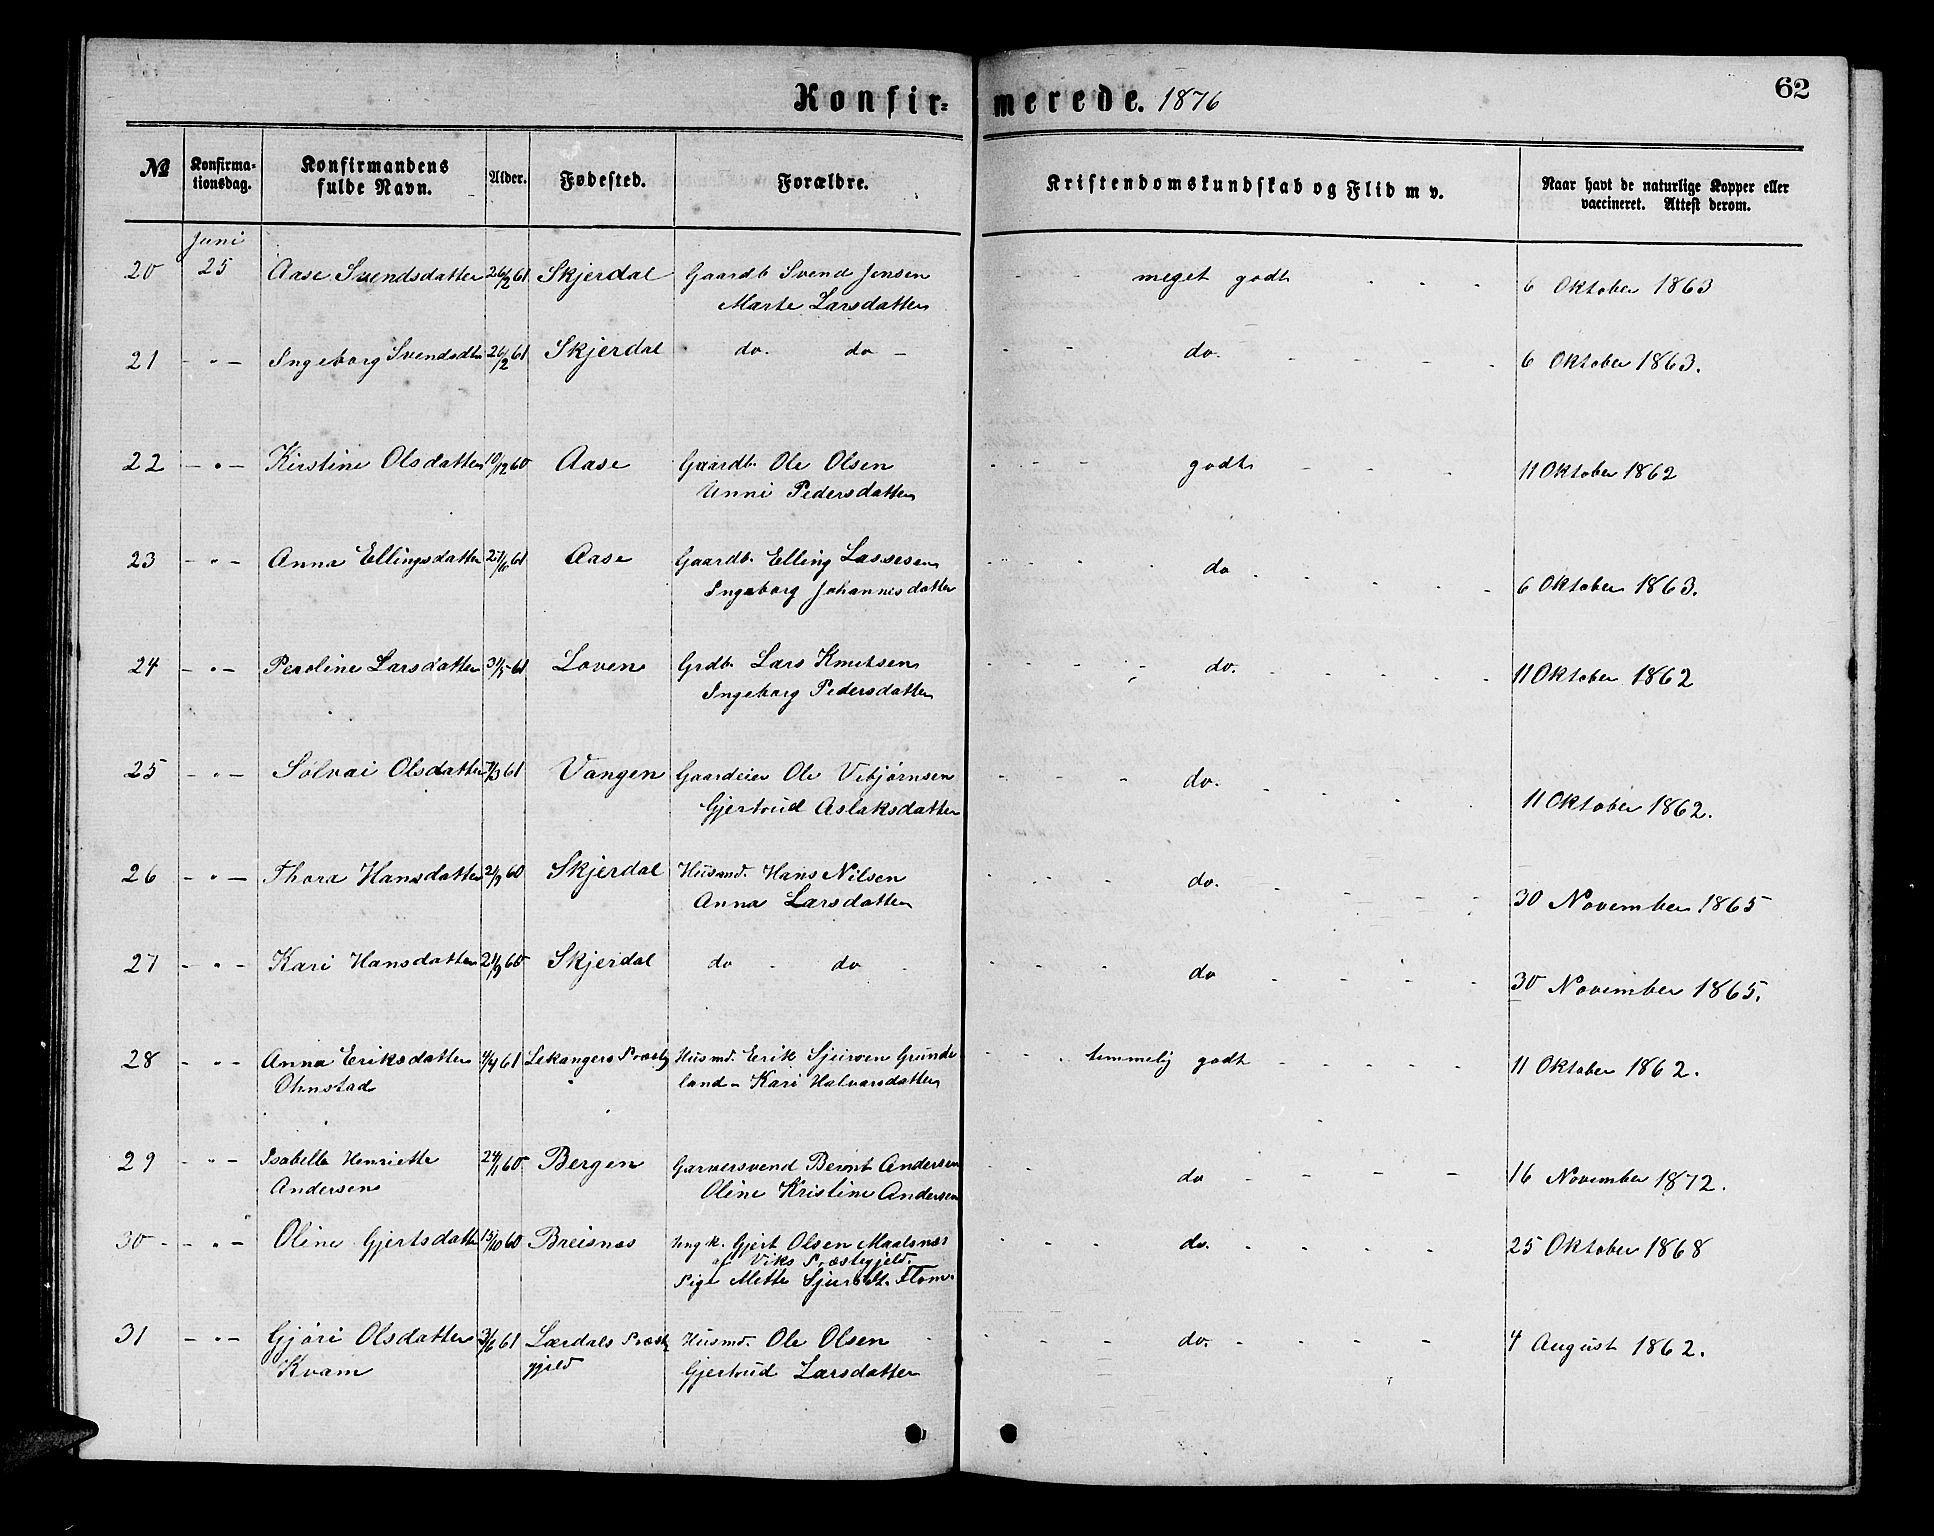 Konfirmerede. 1876
62
№ Konfirmationsdag. Konfirmandens fulde Navn. Alder. Fødested. Forældre. Kristendomskundskab og Flid m v. Naar havt de naturlige Kopper eller vaccineret. Attest derom.
Juni
20 25 Aase Svendsdatter 26/2 61 Skjerdal Gaardb Svend Jensen - - meget godt - - - 6 Oktober 1863
Marte Larsdatter
21 - " - Ingeborg Svendsdtr 26/2 61 Skjerdal do. do - - - do. - - - - 6 Oktober 1863.
22 - " - Kirstine Olsdatter 10/12 60 Aase Gaardb. Ole Olsen - - - godt - - - 11 Oktober 1862
Unni Pedersdatter
23 - " - Anna Ellingsdatter 61 Aase Gaardb. Elling Lassesen - - - - do - - - - - 6 Oktober 1863.
Ingeborg Johannesdatter
24 - " - Peroline Larsdatter 61 Loven Grdb. Lars Knutsen - - - - do. - - - - 11 Oktober 1862
Ingeborg Pedersdatter
25 - " - Sølvai Olsdatter 7/3 61 Vangen Gaardeier Ole Vibjørnsen - - - do. - - - - 11 Oktober 1862.
Gjertrud Aslaksdatter
26 - " - Thora Hansdatter 2/9 60 Skjerdal Husmd. Hans Nilsen - - - do. - - - - 30 November 1865
Anna Larsdatter
27 - " - Kari Hansdatter 60 Skjerdal do - do - - - - do - - - - 30 November 1865.
28 - " - Anna Eriksdatter 4/4 61 Lekangers Præstg Husmd. Erik Sjurven Grunde - - - temmelig godt - - - - - 11 Oktober 1862.
Ohnstad land - Kari Halvarsdatter
29 - " - Isabella Henriette 24/1 60 Bergen Garversvend Bernt Andersen - - do - - - - 16 November 1872.
Andersen Oline Kristine Andersen
30 - " - Oline Gjertsdatter 15/10 60 Breisnæs Ungk. Gjert Olsen Maalsnæs - - - do. - - - - 25 Oktober 1868
af Viks Præstegjeld.
Pige Mette Sjursdt. Flom.
31 - " - Gjøri Olsdatter 3/6 61 Lærdals Præste Husmd. Ole Olsen - - - - do. - - - - 4 August 1862.
Kvam gjeld Gjertrud Larsdatter